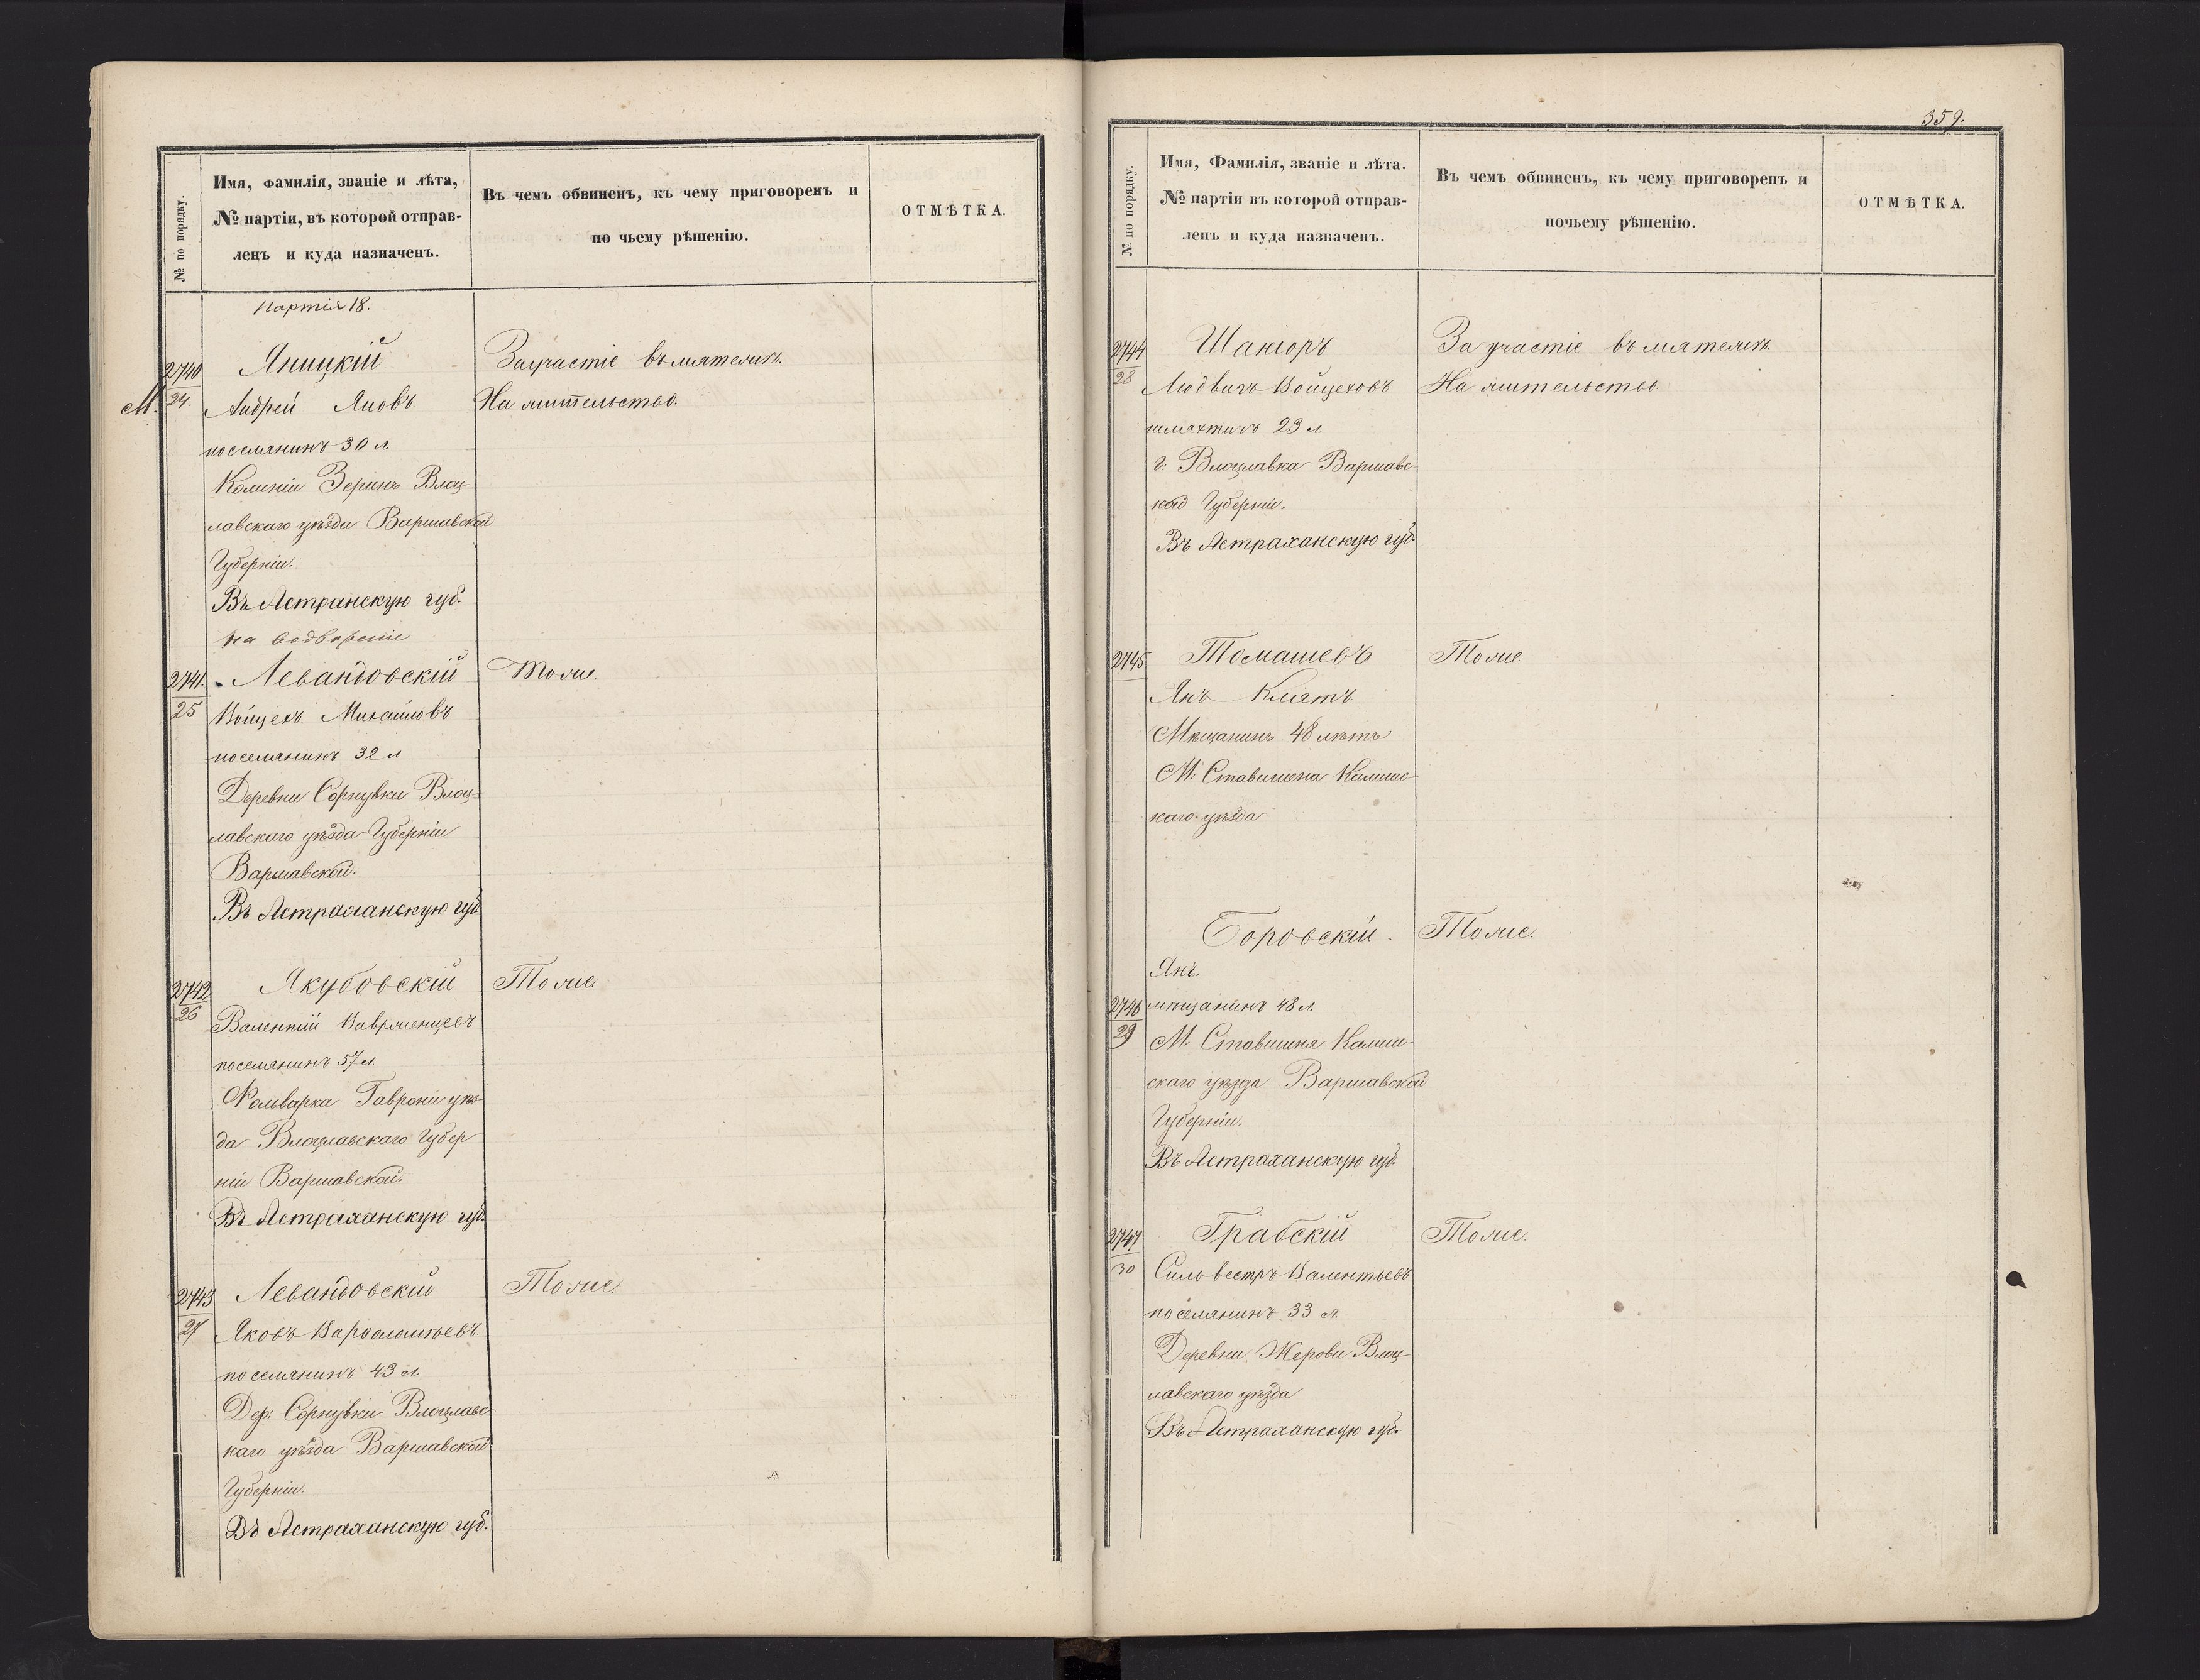 № по порядку.
Имя, Фамилія, званіе и лѣта,
№ партіи, въ которой отправ-
ленъ и куда назначенъ.
Въ чемъ обвиненъ, къ чему приговоренъ и
по чьему рѣшенію.
ОТМѢТКА.
Партія 18.
2740
24.
М.
Яницкій
Андрей Яновъ
поселянинъ 30 л
Колоніи Зеринъ Влоц-
лавскаго уѣзда Варшавской
Губерніи.
Въ Астранскую губ.
на водвореніе
За участіе въ мятежѣ.
На жительство.
2741.
25
Левандовскій
Войцехъ Михайловъ
поселянинъ 32 л
Деревни Сорнувки Влоц-
лавскаго уѣзда Губерніи
Варшавской.
Въ Астраханскую губ.
Тоже.
2742
26
Якубовскій
Валентій Ваврженцевъ
поселянинъ 57 л.
Фольварка Гаврони уѣз-
да Влоцлавскаго Губер-
ніи Варшавской.
Въ Астраханскую губ.
Тоже.
2743
27
Левандовскій
Яковъ Варфоломѣевъ
поселянинъ 43 л.
Дер: Сорнувки Влоцлавс-
каго уѣзда Варшавской
Губерніи.
Въ Астраханскую губ.
Тоже.
359.
№ по порядку.
Имя, Фамилія, званіе и лѣта.
№ партіи въ которой отправ-
ленъ и куда назначенъ.
Въ чемъ обвиненъ, къ чему приговоренъ и
почьему рѣшенію.
ОТМѢТКА.
2744
28
Шаніоръ
Людвигъ Войцеховъ
шляхтичъ 23 л.
г: Влоцлавка Варшавс-
кой Губерніи.
Въ Астраханскую губ.
За участіе въ мятежѣ.
На жительство
2745
Томашевъ
Янъ Кміятъ
Мѣщанинъ 48 лѣтъ
М: Ставишена Калишс-
каго уѣзда
Тоже.
2746
29
Боровскій.
Янъ.
мѣщанинъ 48 л.
М. Ставишня Калиш-
скаго уѣзда Варшавской
Губерніи.
Въ Астраханскую губ.
Тоже.
2747
30
Грабскій
Сильвестръ Валентьевъ
поселянинъ 33 л.
Деревни Жерови Влоц-
лавскаго уѣзда
Въ Астраханскую губ.
Тоже.